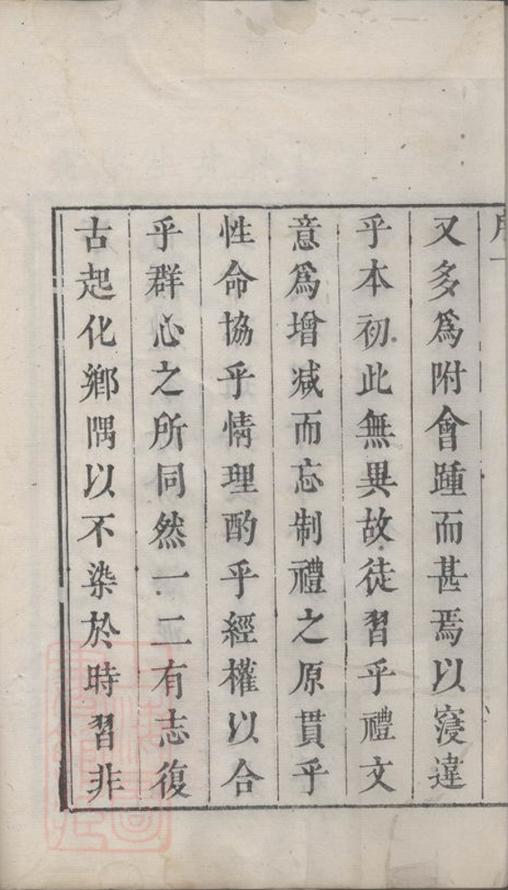 又多爲附會踵而甚焉以寖違
乎本初此無異故徒習乎禮文
意爲增减而忘制禮之原貫乎
性命協乎情理酌乎經權以合
乎群心之所同然一二有志復
古起化鄉隅以不染於時習非